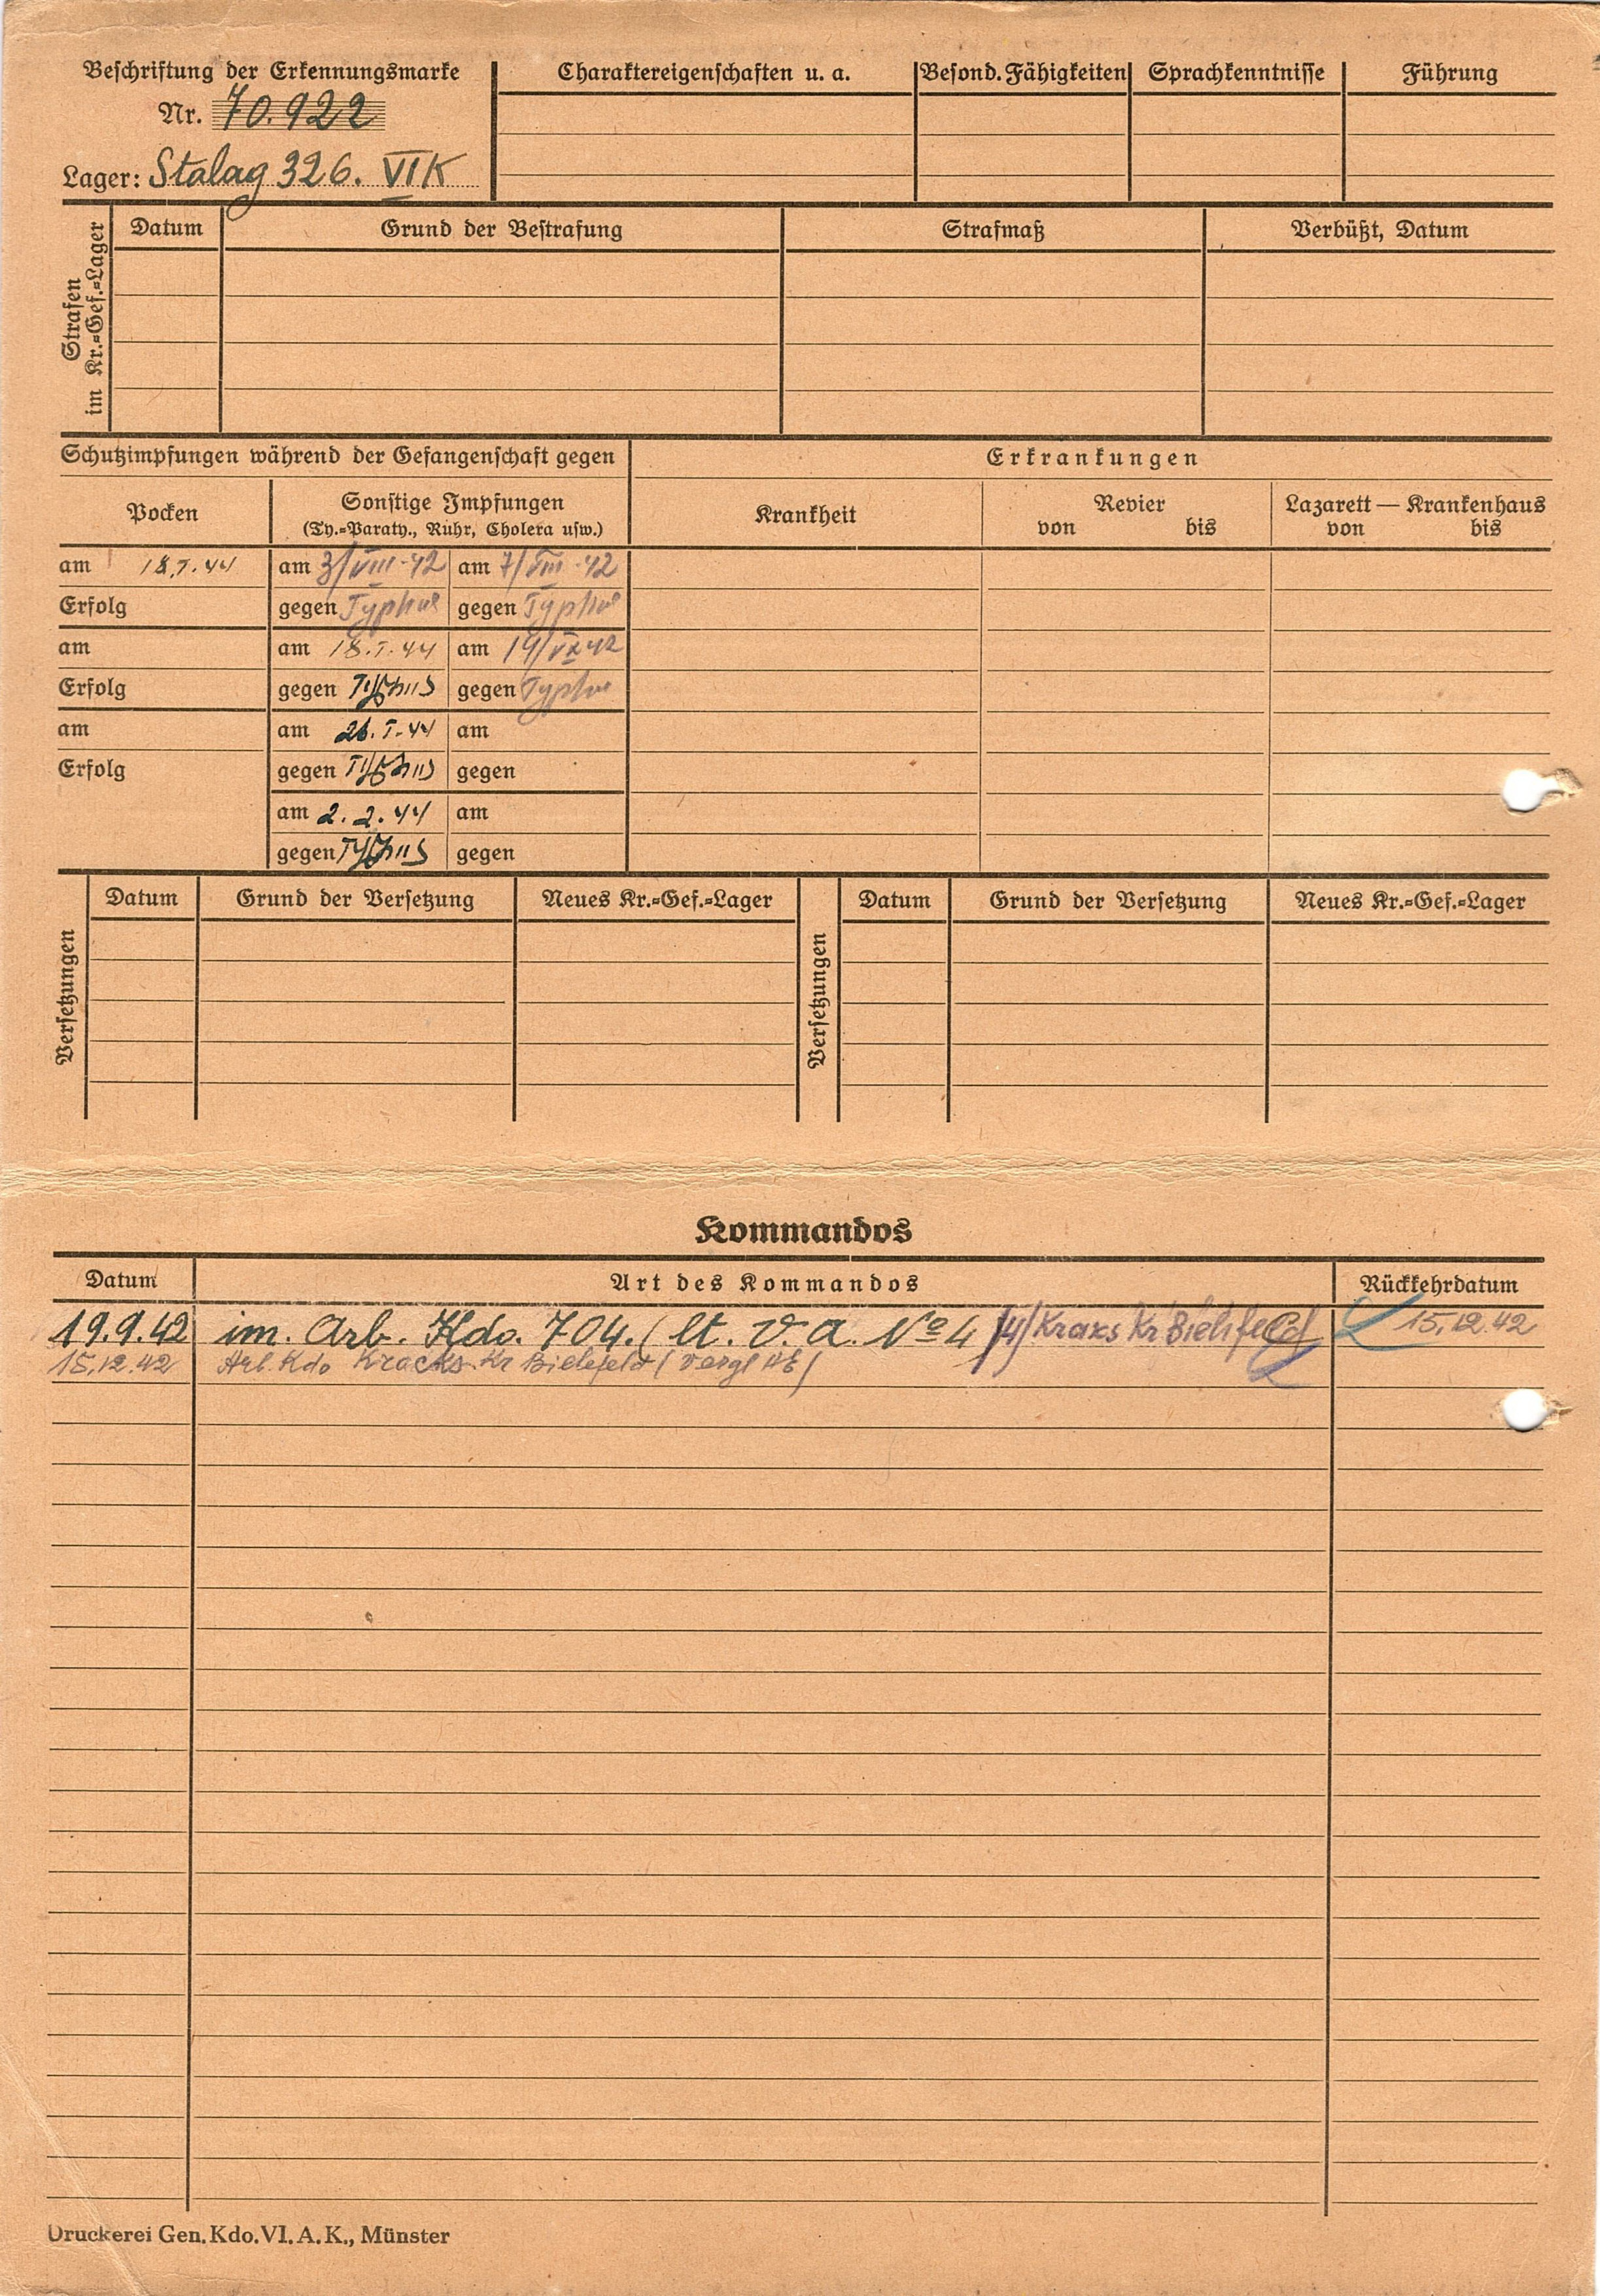 Beschriftung der Erkennungsmarke
Nr. 70.922
Lager: Stalag 326. VIK
Charaktereigenschaften u. a.
Besond. Fähigkeiten
Sprachkenntnisse
Führung
Strafen
im Kr.=Gef.=Lager
Datum
Grund der Bestrafung
Strafmaß
Verbüßt, Datum
Schutzimpfungen während der Gefangenschaft gegen
Erkrankungen
Pocken
Sonstige Impfungen
(Ty.=Paraty., Ruhr, Cholera usw.)
Krankheit
Revier
von bis
Lazarett — Krankenhaus
von bis
am 18.I.44 am 3/VIII.42 am 7/VIII.42
Erfolg gegen Typhus gegen Typhus
am am 18.I.44 am 19/IX 42
Erfolg gegen Typhus gegen Typhus
am am 26.I.44 am
Erfolg gegen Typhus gegen
am 2.2.44 am
gegen Typhus gegen
Versetzungen
Datum Grund der Versetzung Neues Kr.=Gef.=Lager
Versetzungen
Datum Grund der Versetzung Neues Kr.=Gef.=Lager
Kommandos
Datum Art des Kommandos Rückkehrdatum
19.9.42 im. Arb. Kdo. 704. (lt. V. A. No 4 /4/ Kraks Kr Bielefeld 15.12.42
15.12.42 Arb. Kdo Kracks Kr Bielefeld
Druckerei Gen. Kdo. VI. A. K., Münster